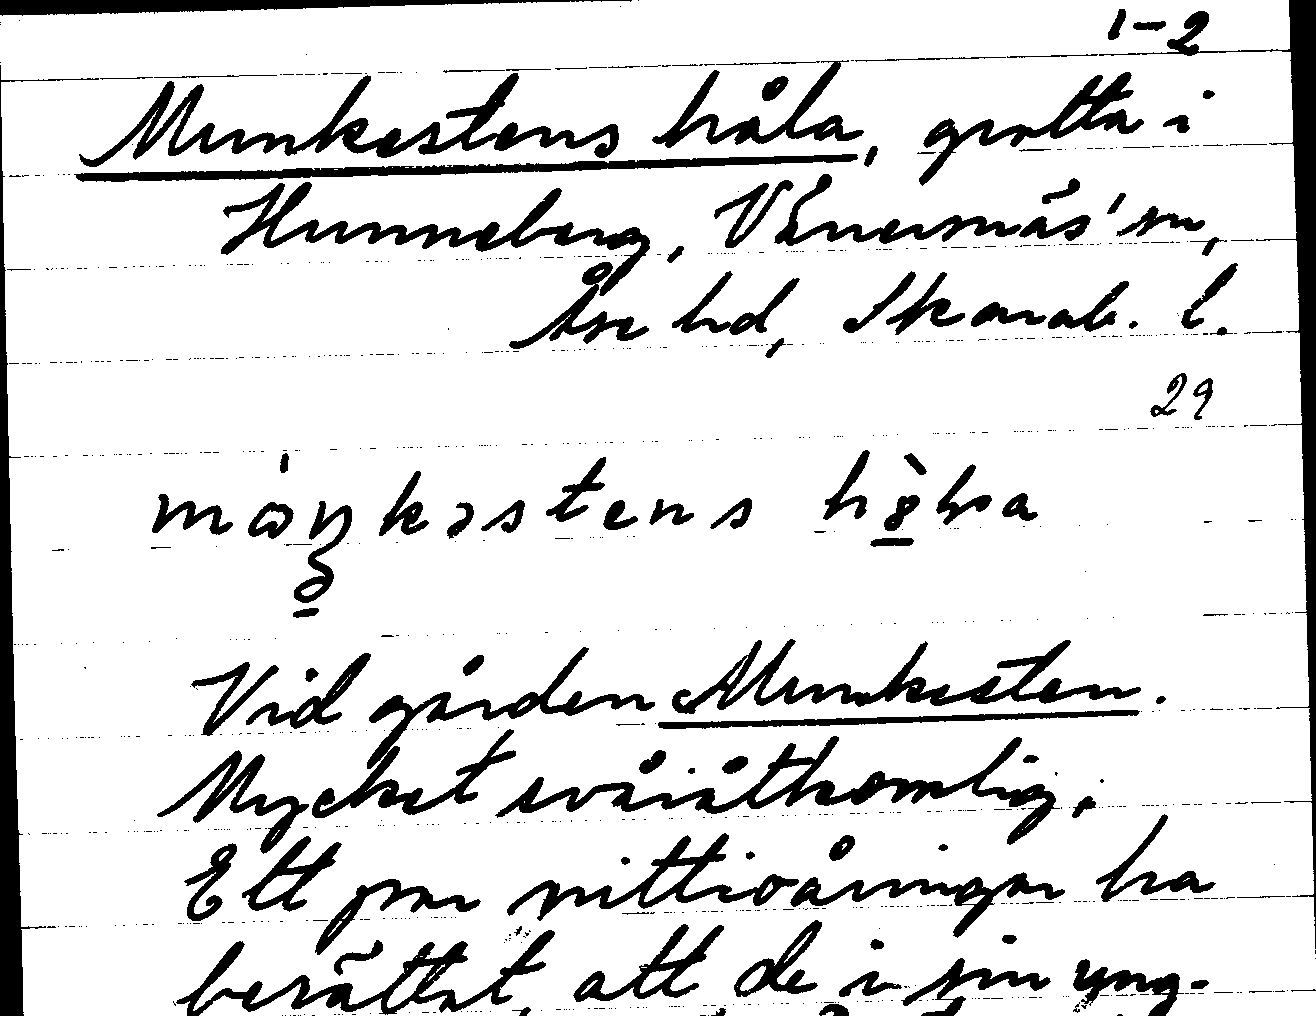 1-2
Munkestens håla, grotta i
Hunneberg, Vänersnäs' sn,
Åse hd, Skarab. l.
29
Vid gården Munkesten.
Mycket svåråtkomlig.
Ett par nittioåringar ha
berättat, att de i sin ung-